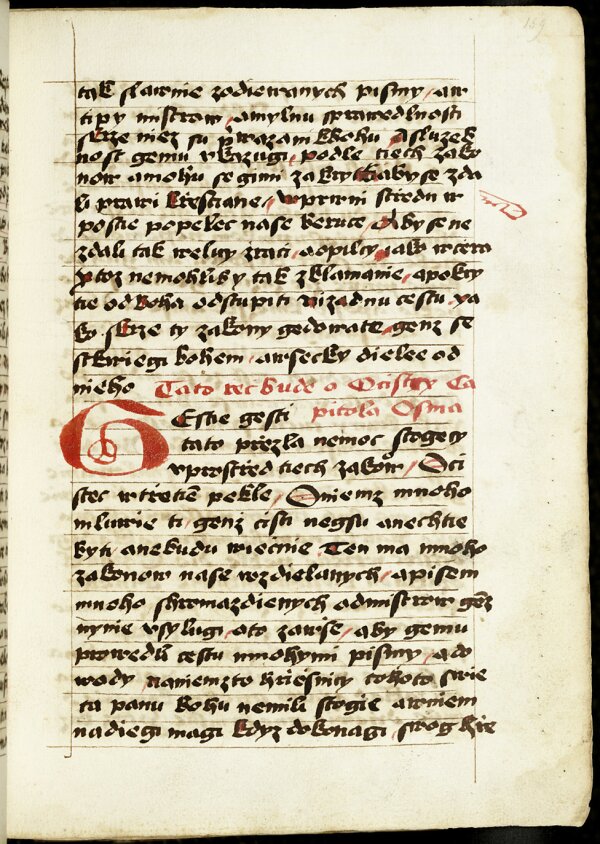 159
tak slawnie zodiewanych pismy, aw
tipy mistrow, amylnu sprawedlnosti
skrze niez su p wazani kbohu Asluzeb
nost gemu vkazugi, podle tiech zako
now amohu se gimi zakryti aby se zda
li prawi krestiane, wprwni strzedu w
postie popelec nase beruce, Aby se ne
zdali tak welicy zraci, aopilcy, iakz wcera
Ptoz nemohlis y tak zklamanie, apokry
tie od boha odstupiti nizadnu cestu, ya
ko skrze ty zakony gedowate, genz se
stkwiegi bohem, awsecky dielee od
nieho Tato rec bude o Ocistcy Ca
pitola Osma
GEstie gesti
tato przezla nemoc stogecy
vprostrzed tiech zakow, Oci
stec wtretiem pekle, Oniemz mnoho
mluwie ti, genz cisti negsu anechtie
byti, anebudu wiecnie Ten ma mnoho
zakonow nase wzdielanych, apisem
mnoho shromazdienych odmistrow genz
nynie vsylugi, oto zawse, aby gemu
prowedli cestu mnohymi pismy, ado
wody naniemzto hriesnicy tohoto swie
ta panu bohu nemili stogie awniem
nadiegi magi kdyz dokonagi swog hrie